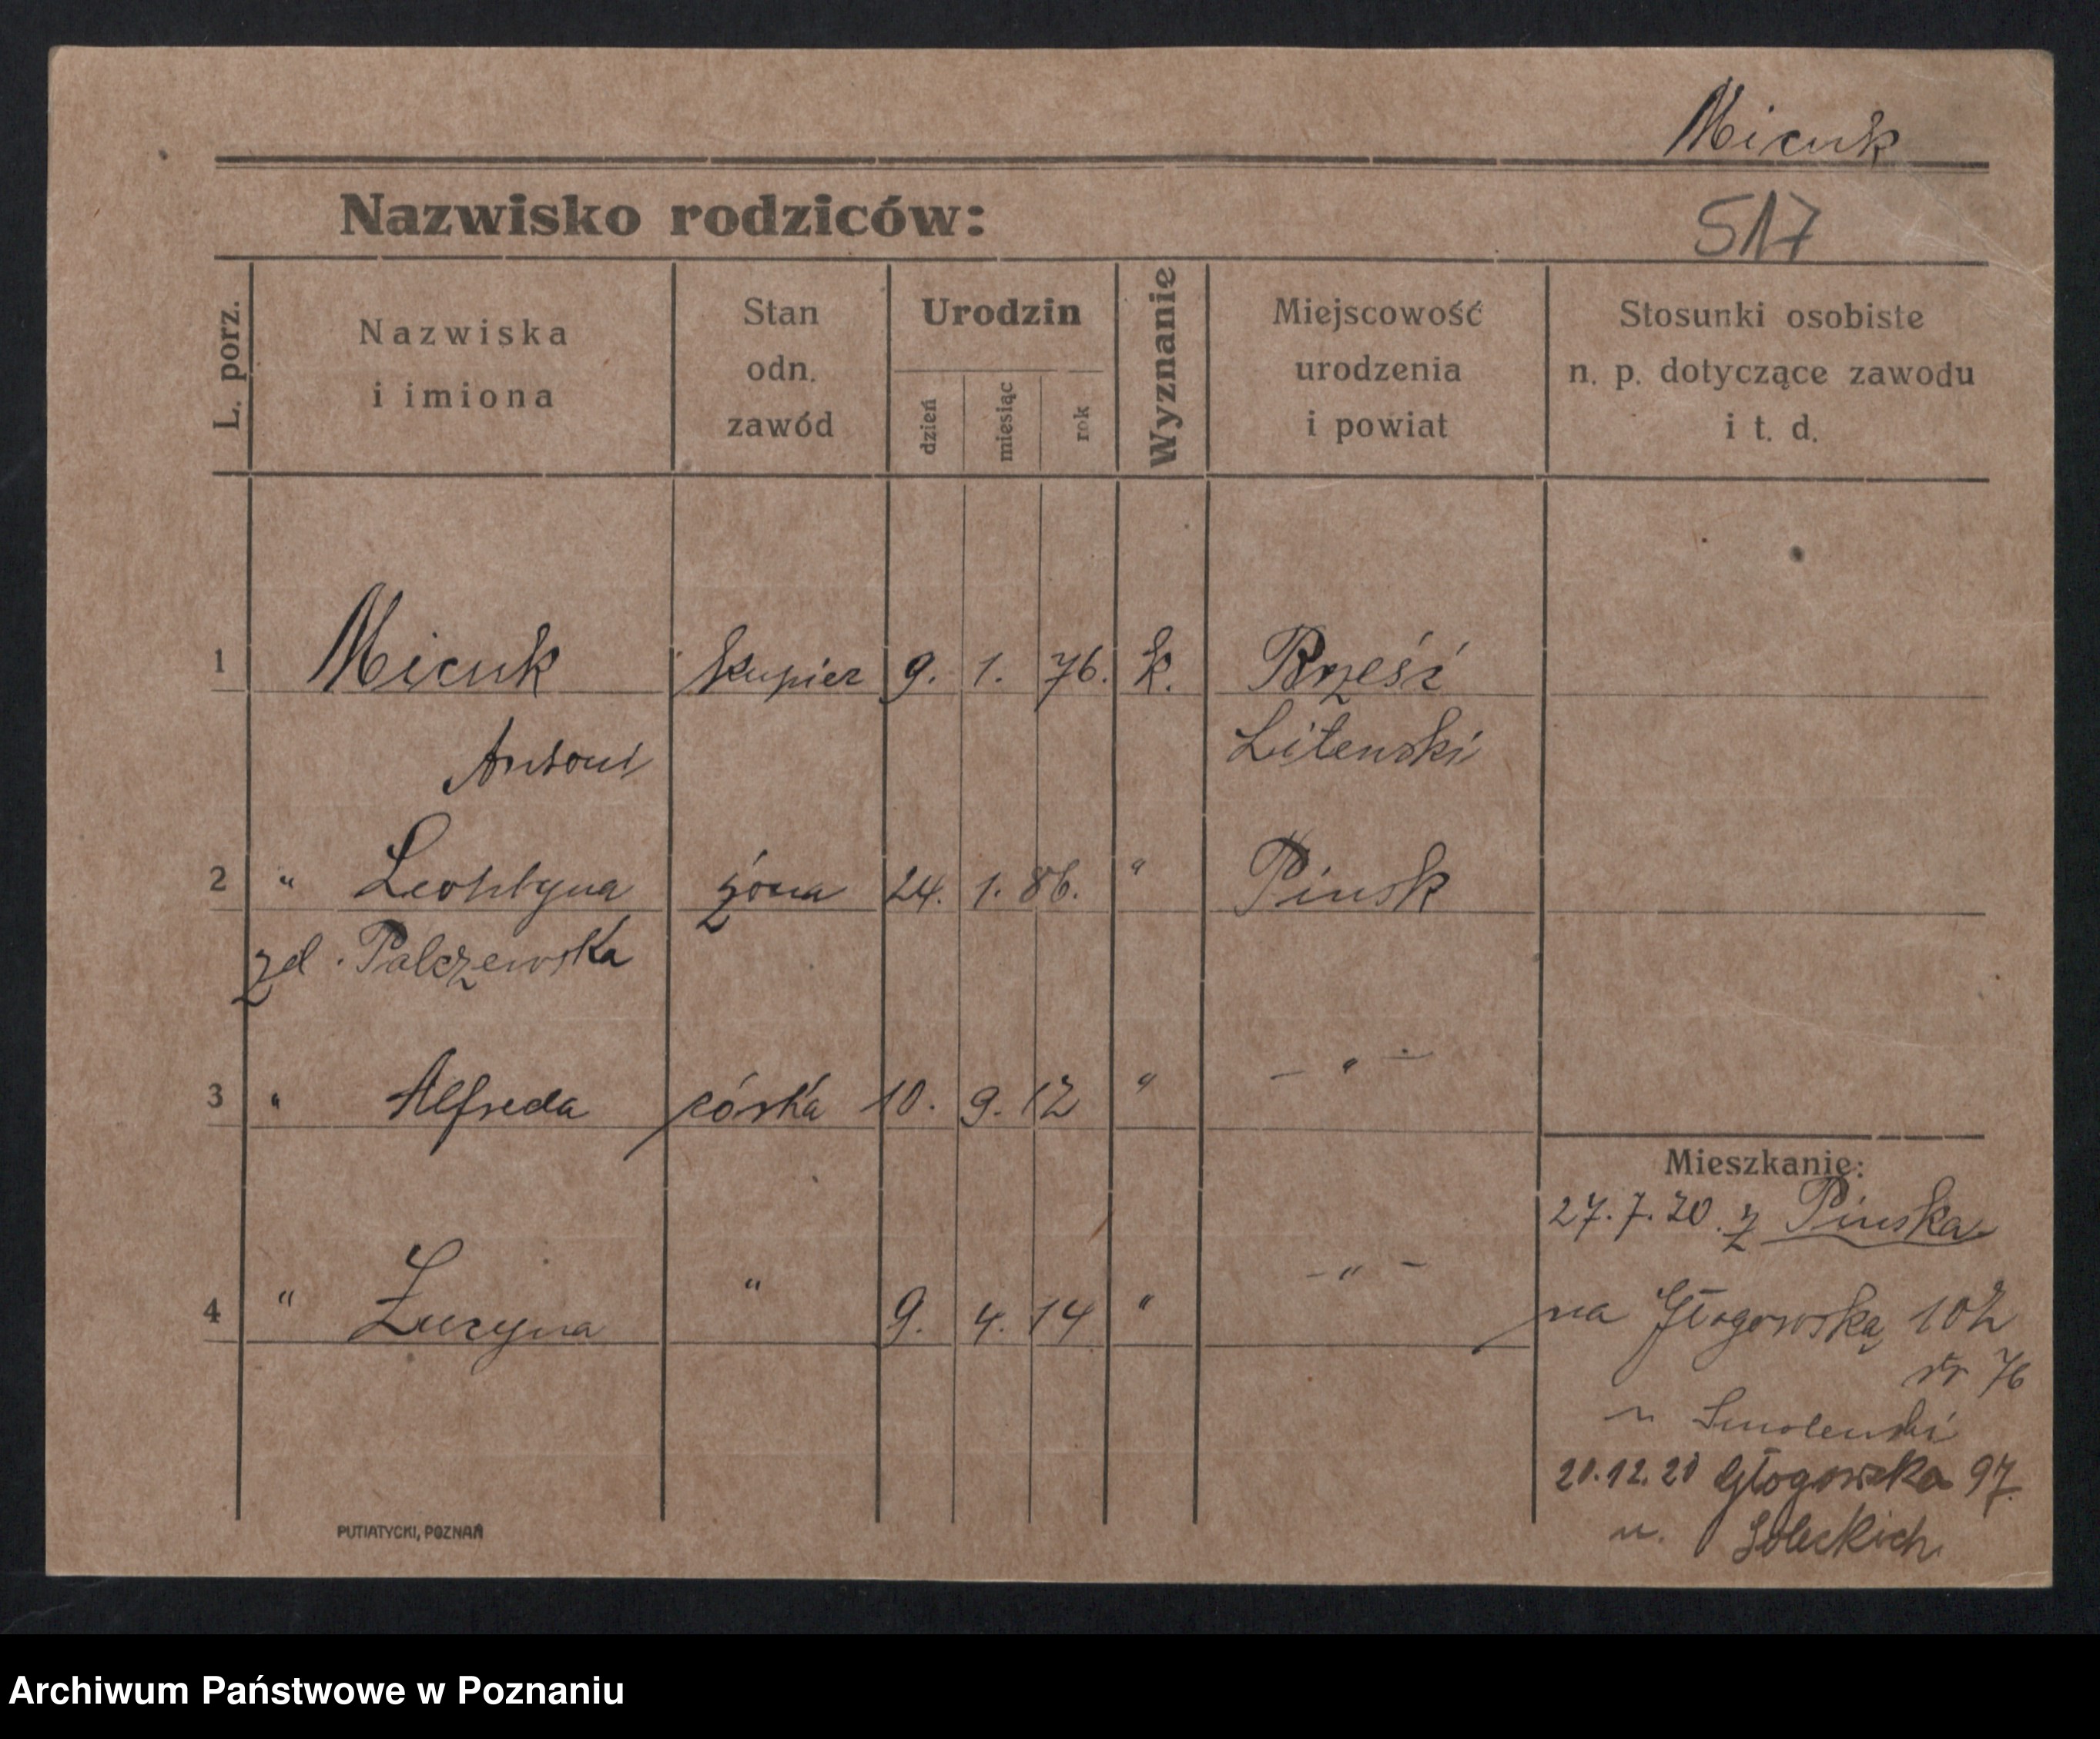 Micuk
Nazwisko rodziców:
517
L. porz.
Nazwiska
i imiona
Stan
odn.
zawód
Urodzin
dzień
miesiąc
rok
Wyznanie
Miejscowość
urodzenia
i powiat
Stosunki osobiste
n. p. dotyczące zawodu
i t. d.
1 Micuk kupiec 9. 1. 76. k. Brześć
Antoni Litewski
2 " Leontyna żona 24. 1. 86. " Pinsk
zd. Palczewska
3 " Alfreda córka 10. 9. 12 " - " -
4 " Lucyna " 9. 4. 14 " - " -
Mieszkanie:
27.7.20. z Pinska
na Głogowską 102
76
u Smolenski
20.12.20 Głogowska 97.
u. Soleckich
PUTIATYCKI, POZNAŃ
Archiwum Państwowe w Poznaniu